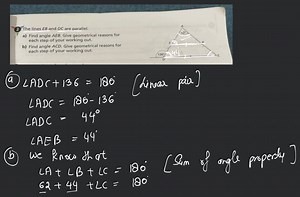 The lines EB and DC are parallel.
a) Find angle AEB. Give geometrical reasons for
each step of your working out.
b) Find angle ACD. Give geometrical reasons for
each step of your working out.
(a) ∠ADC + 136 = 180° [Linear pair]
∠ADC = 180 - 136°
∠ADC = 44°
∠AEB = 44°
(b) we know that
∠A + ∠B + ∠C = 180° [Sum of angle property]
62 + 44 + ∠C = 180°